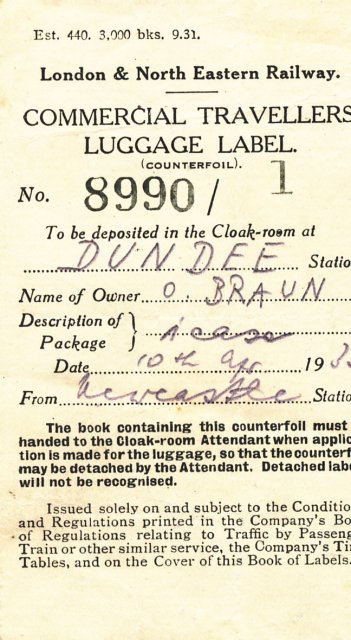 Est. 440. 3,000 bks. 9.31.
London & North Eastern Railway.
COMMERCIAL TRAVELLERS
LUGGAGE LABEL.
(COUNTERFOIL).
No. 8990/1
To be deposited in the Cloak-room at
DUNDEE Statio
Name of Owner O. BRAUN
Description of
Package 1 case
Date 10th Apr. 193
From Newcastle Statio
The book containing this counterfoil must
handed to the Cloak-room Attendant when applic
tion is made for the luggage, so that the counterf
may be detached by the Attendant. Detached labe
will not be recognised.
Issued solely on and subject to the Conditio
and Regulations printed in the Company's Bo
of Regulations relating to Traffic by Passeng
Train or other similar service, the Company's Ti
Tables, and on the Cover of this Book of Labels.